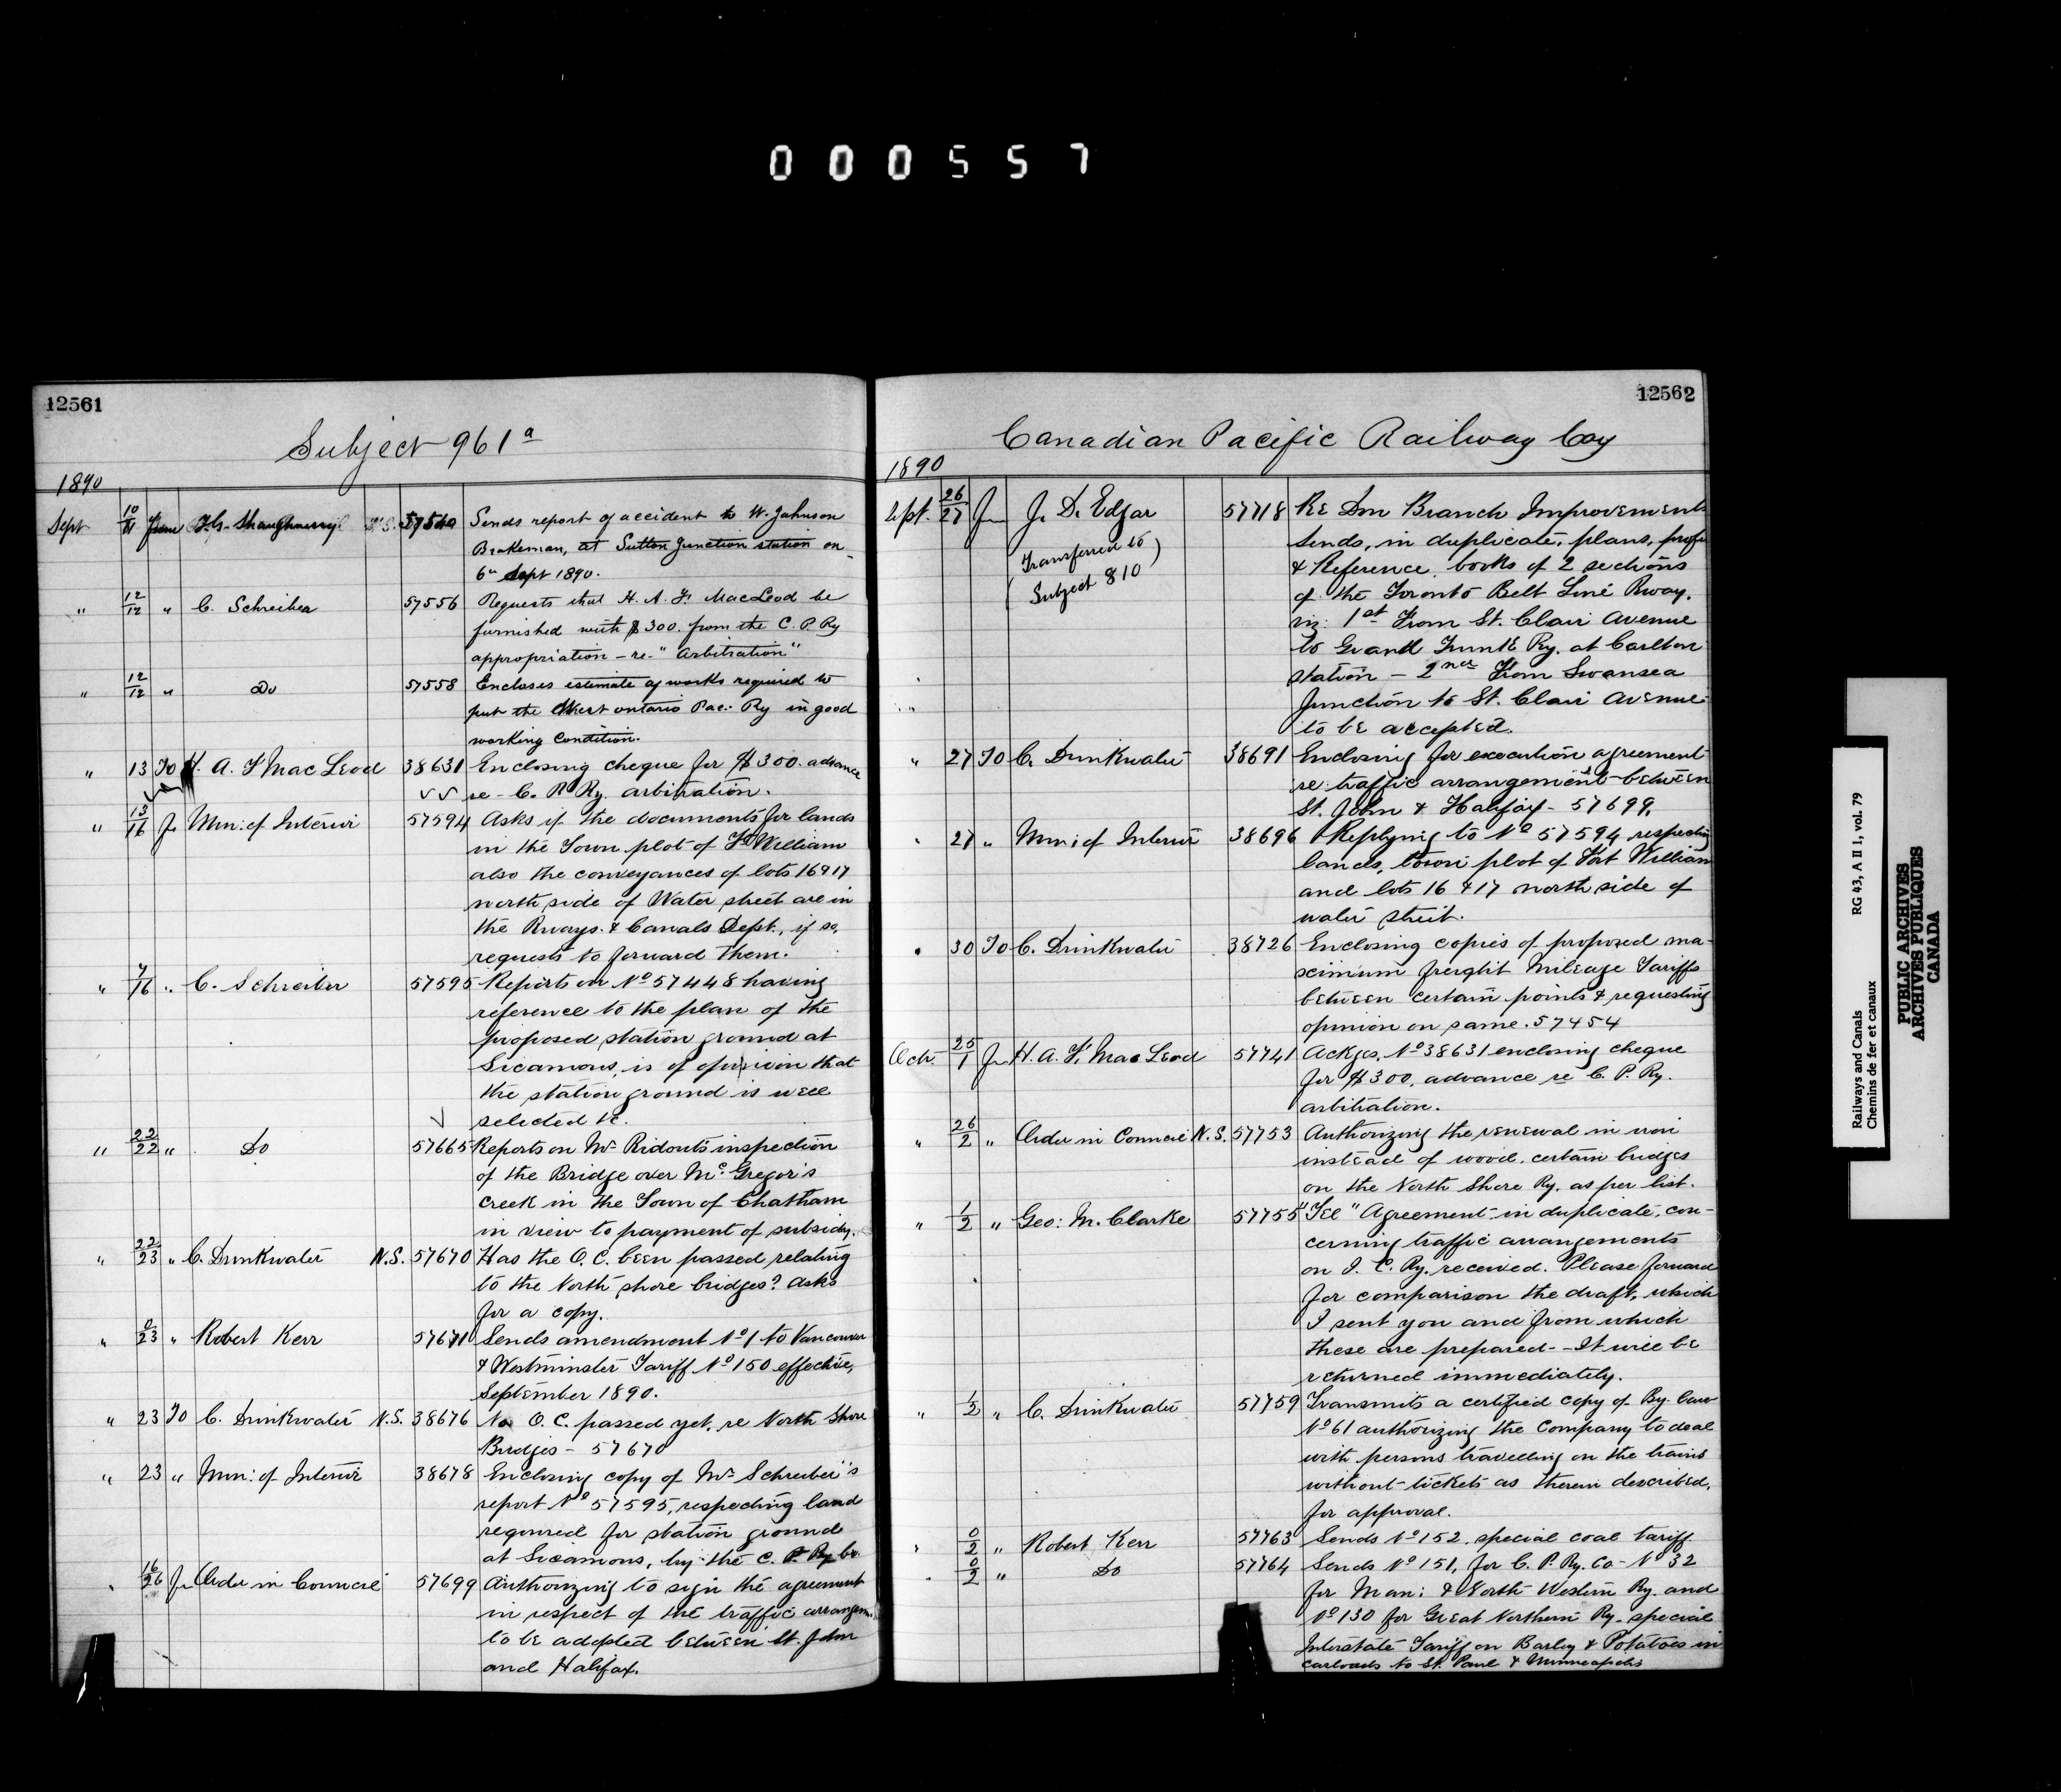 000557
12561
Subject 961a
1890
Sept 10/11 From T. G. Shaughnessy N.S. 57540 Sends report of accident to W. Johnson
Brakeman, at Sutton Junction station on
6th Sept 1890.
" 12/12 " C. Schreiber 57556 Requests that H. A. F. MacLeod be
furnished with $300. from the C. P. Ry
appropriation – re "Arbitration"
" 12/12 " Do 57558 Encloses estimate of works required to
put the West Ontario Pac. Ry in good
working condition.
" 13 To H. A. F MacLeod 38631 Enclosing cheque for $300. advance
re – C. P. Ry. arbitration.
" 13/16 Fr Min: of Interior 57594 Asks if the documents for lands
in the Town plot of Ft William
also the conveyances of lots 16 & 17
north side of Water street are in
the Rways. & Canals Dept., if so,
requests to forward them.
" 9/16 " C. Schreiber 57595 Reports on No 57448 having
reference to the plan of the
proposed station ground at
Sicamous, is of opinion that
the station ground is well
selected &c.
" 22/22 " Do 57665 Reports on Mr Ridout's inspection
of the Bridge over McGregor's
creek in the Town of Chatham
in view to payment of subsidy.
" 22/23 " C. Drinkwater N.S. 57670 Has the O. C. been passed relating
to the North shore bridges? Asks
for a copy.
" 0/23 " Robert Kerr 57671 Sends amendment No 1 to Vancouver
& Westminster Tariff No 150 effective,
September 1890.
" 23 To C. Drinkwater N.S. 38676 No O. C. passed yet, re North Shore
Bridges – 57670
" 23 " Min: of Interior 38678 Enclosing copy of Mr Schreiber's
report No 57595, respecting land
required for station ground
at Sicamous, by the C. P. Ry Co
" 16/26 Fr Order in Council 57699 Authorizing to sign the agreement
in respect of the traffic arrangem.
to be adopted between St. John
and Halifax.
12562
Canadian Pacific Railway Coy
1890
Sept. 26/27 Fr J. D. Edgar 57718 Re Don Branch Improvements
(Transferred to
Subject 810)
Sends, in duplicate, plans, profs
& Reference books of 2 sections
of the Toronto Belt Line Rway.
viz: 1st From St. Clair Avenue
to Grand Trunk Ry. at Carlton
station – 2nd From Swansea
Junction to St. Clair Avenue
to be accepted.
" 27 To C. Drinkwater 38691 Enclosing for execution agreement
re traffic arrangements between
St. John & Halifax – 57699.
" 27 " Min: of Interior 38696 Replying to No 57594 respecting
lands, town plot of Fort William
and lots 16 & 17 north side of
water street.
" 30 To C. Drinkwater 38726 Enclosing copies of proposed ma-
ximum freight Mileage Tariffs
between certain points & requesting
opinion on same. 57454
Oct. 25/1 Fr H. A. F. MacLeod 57741 Ackges. No 38631 enclosing cheque
for $300, advance re C. P. Ry.
arbitration.
" 26/2 " Order in Council N.S. 57753 Authorizing the renewal in iron
instead of wood, certain bridges
on the North Shore Ry. as per list.
" 1/2 " Geo: M. Clarke 57755 "Tel" Agreement in duplicate, con-
cerning traffic arrangements
on I. C. Ry. received. Please forward
for comparison the draft, which
I sent you and from which
these are prepared – It will be
returned immediately.
" 1/2 " C. Drinkwater 57759 Transmits a certified copy of By-law
No 61 authorizing the Company to deal
with persons travelling on the trains
without tickets as therein described,
for approval.
" 0/2 " Robert Kerr 57763 Sends No 152. special coal tariff.
" 0/2 " Do 57764 Sends No 151, for C. P. Ry. Co – No 32
for Man: & North Western Ry. and
No 130 for Great Northern Ry. special
Interstate Tariff on Barley & Potatoes in
carloads to St. Paul & Minneapolis
Railways and Canals RG 43, A II 1, vol. 79
Chemins de fer et canaux
PUBLIC ARCHIVES
ARCHIVES PUBLIQUES
CANADA